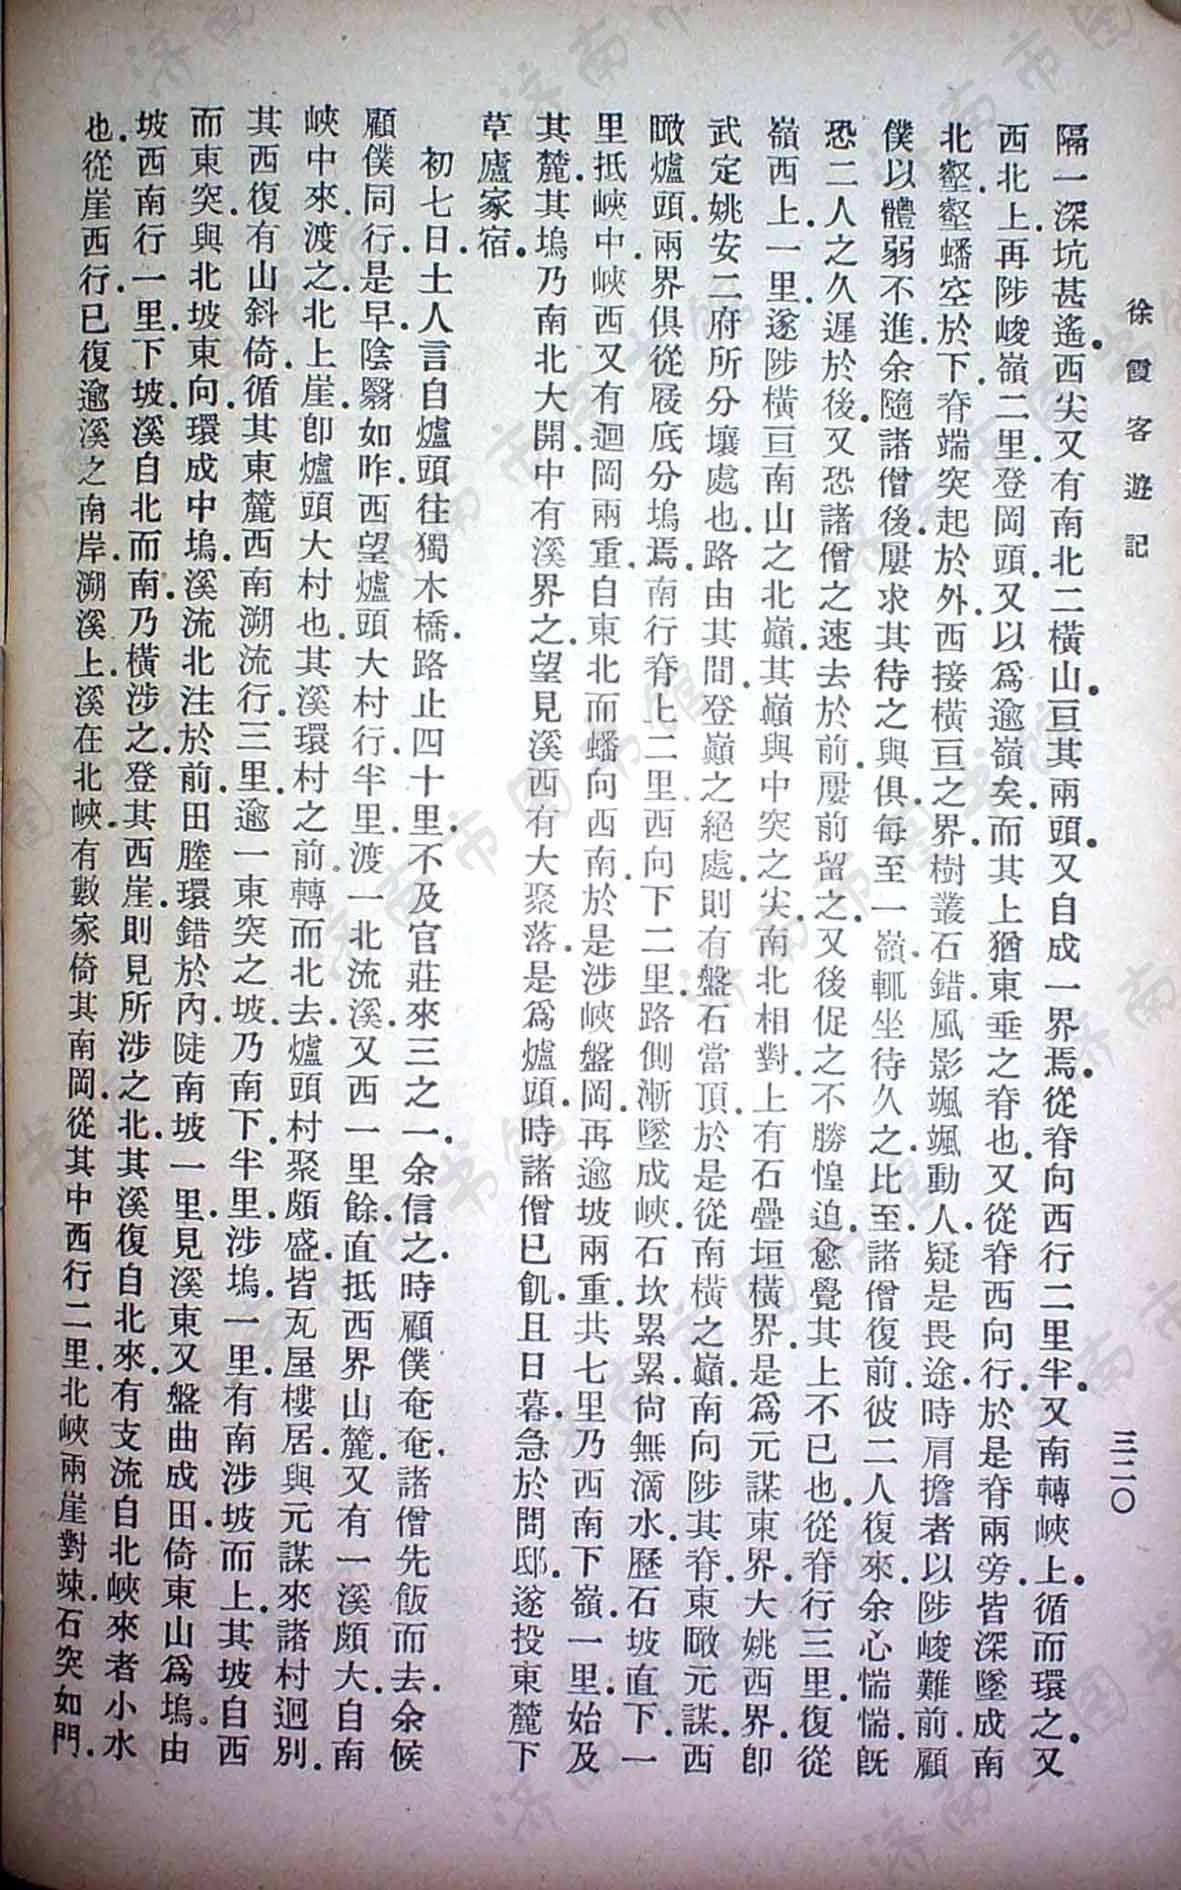 徐霞客遊記
三二〇
隔一深坑甚遙。西尖又有南北二橫山。亘其兩頭。又自成一界焉。從脊向西行二里半。又南轉峽上。循而環之。又
西北上。再陟峻嶺二里。登岡頭。又以爲逾嶺矣。而其上猶東垂之脊也。又從脊西向行。於是脊兩旁。皆深墜成南
北壑。壑蟠空於下。脊端突起於外。西接橫亘之界。樹叢石錯。風影颯颯動人。疑是畏途。時肩擔者以陟峻難前。顧
僕以體弱不進。余隨諸僧後。屢求其待之與俱。每至一嶺。輒坐待久之。比至。諸僧復前。彼二人復來。余心惴惴。旣
恐二人之久遲於後。又恐諸僧之速去於前。屢前留之。又後促之。不勝惶迫。愈覺其上不已也。從脊行三里。復從
嶺西上一里。遂陟橫亘南山之北巔。其巔與中突之尖。南北相對。上有石疊垣橫界。是爲元謀東界。大姚西界。卽
武定姚安二府所分壤處也。路由其間。登巔之絕處。則有盤石當頂。於是從南橫之巔。南向陟其脊。東瞰元謀。西
瞰爐頭。兩界俱從屐底分塢焉。南行脊上二里。西向下二里。路側漸墜成峽。石坎累累。尙無滴水。歷石坡直下。一
里。抵峽中。峽西又有迴岡兩重。自東北而蟠向西南。於是涉峽盤岡。再逾坡兩重。共七里。乃西南下嶺。一里。始及
其麓。其塢乃南北大開。中有溪界之。望見溪西有大聚落。是爲爐頭。時諸僧已飢。且日暮。急於問邸。遂投東麓下
草廬家宿。
初七日。土人言自爐頭往獨木橋。路止四十里。不及官莊來三之一。余信之。時顧僕奄奄。諸僧先飯而去。余候
顧僕同行。是早。陰翳如昨。西望爐頭大村行。半里。渡一北流溪。又西一里餘。直抵西界山麓。又有一溪頗大。自南
峽中來。渡之。北上崖。卽爐頭大村也。其溪環村之前。轉而北去。爐頭村聚頗盛。皆瓦屋樓居。與元謀來諸村迥別。
其西復有山斜倚。循其東麓西南溯流行。三里。逾一東突之坡。乃南下。半里。涉塢。一里。有南涉坡而上。其坡自西
而東突。與北坡東向。環成中塢。溪流北注於前。田塍環錯於內。陡南坡一里。見溪東又盤曲成田。倚東山爲塢。由
坡西南行一里。下坡。溪自北而南。乃橫涉之。登其西崖。則見所涉之北。其溪復自北來。有支流自北峽來者。小水
也。從崖西行。已復逾溪之南岸。溯溪上。溪在北峽。有數家倚其南岡。從其中西行二里。北峽兩崖對竦。石突如門。